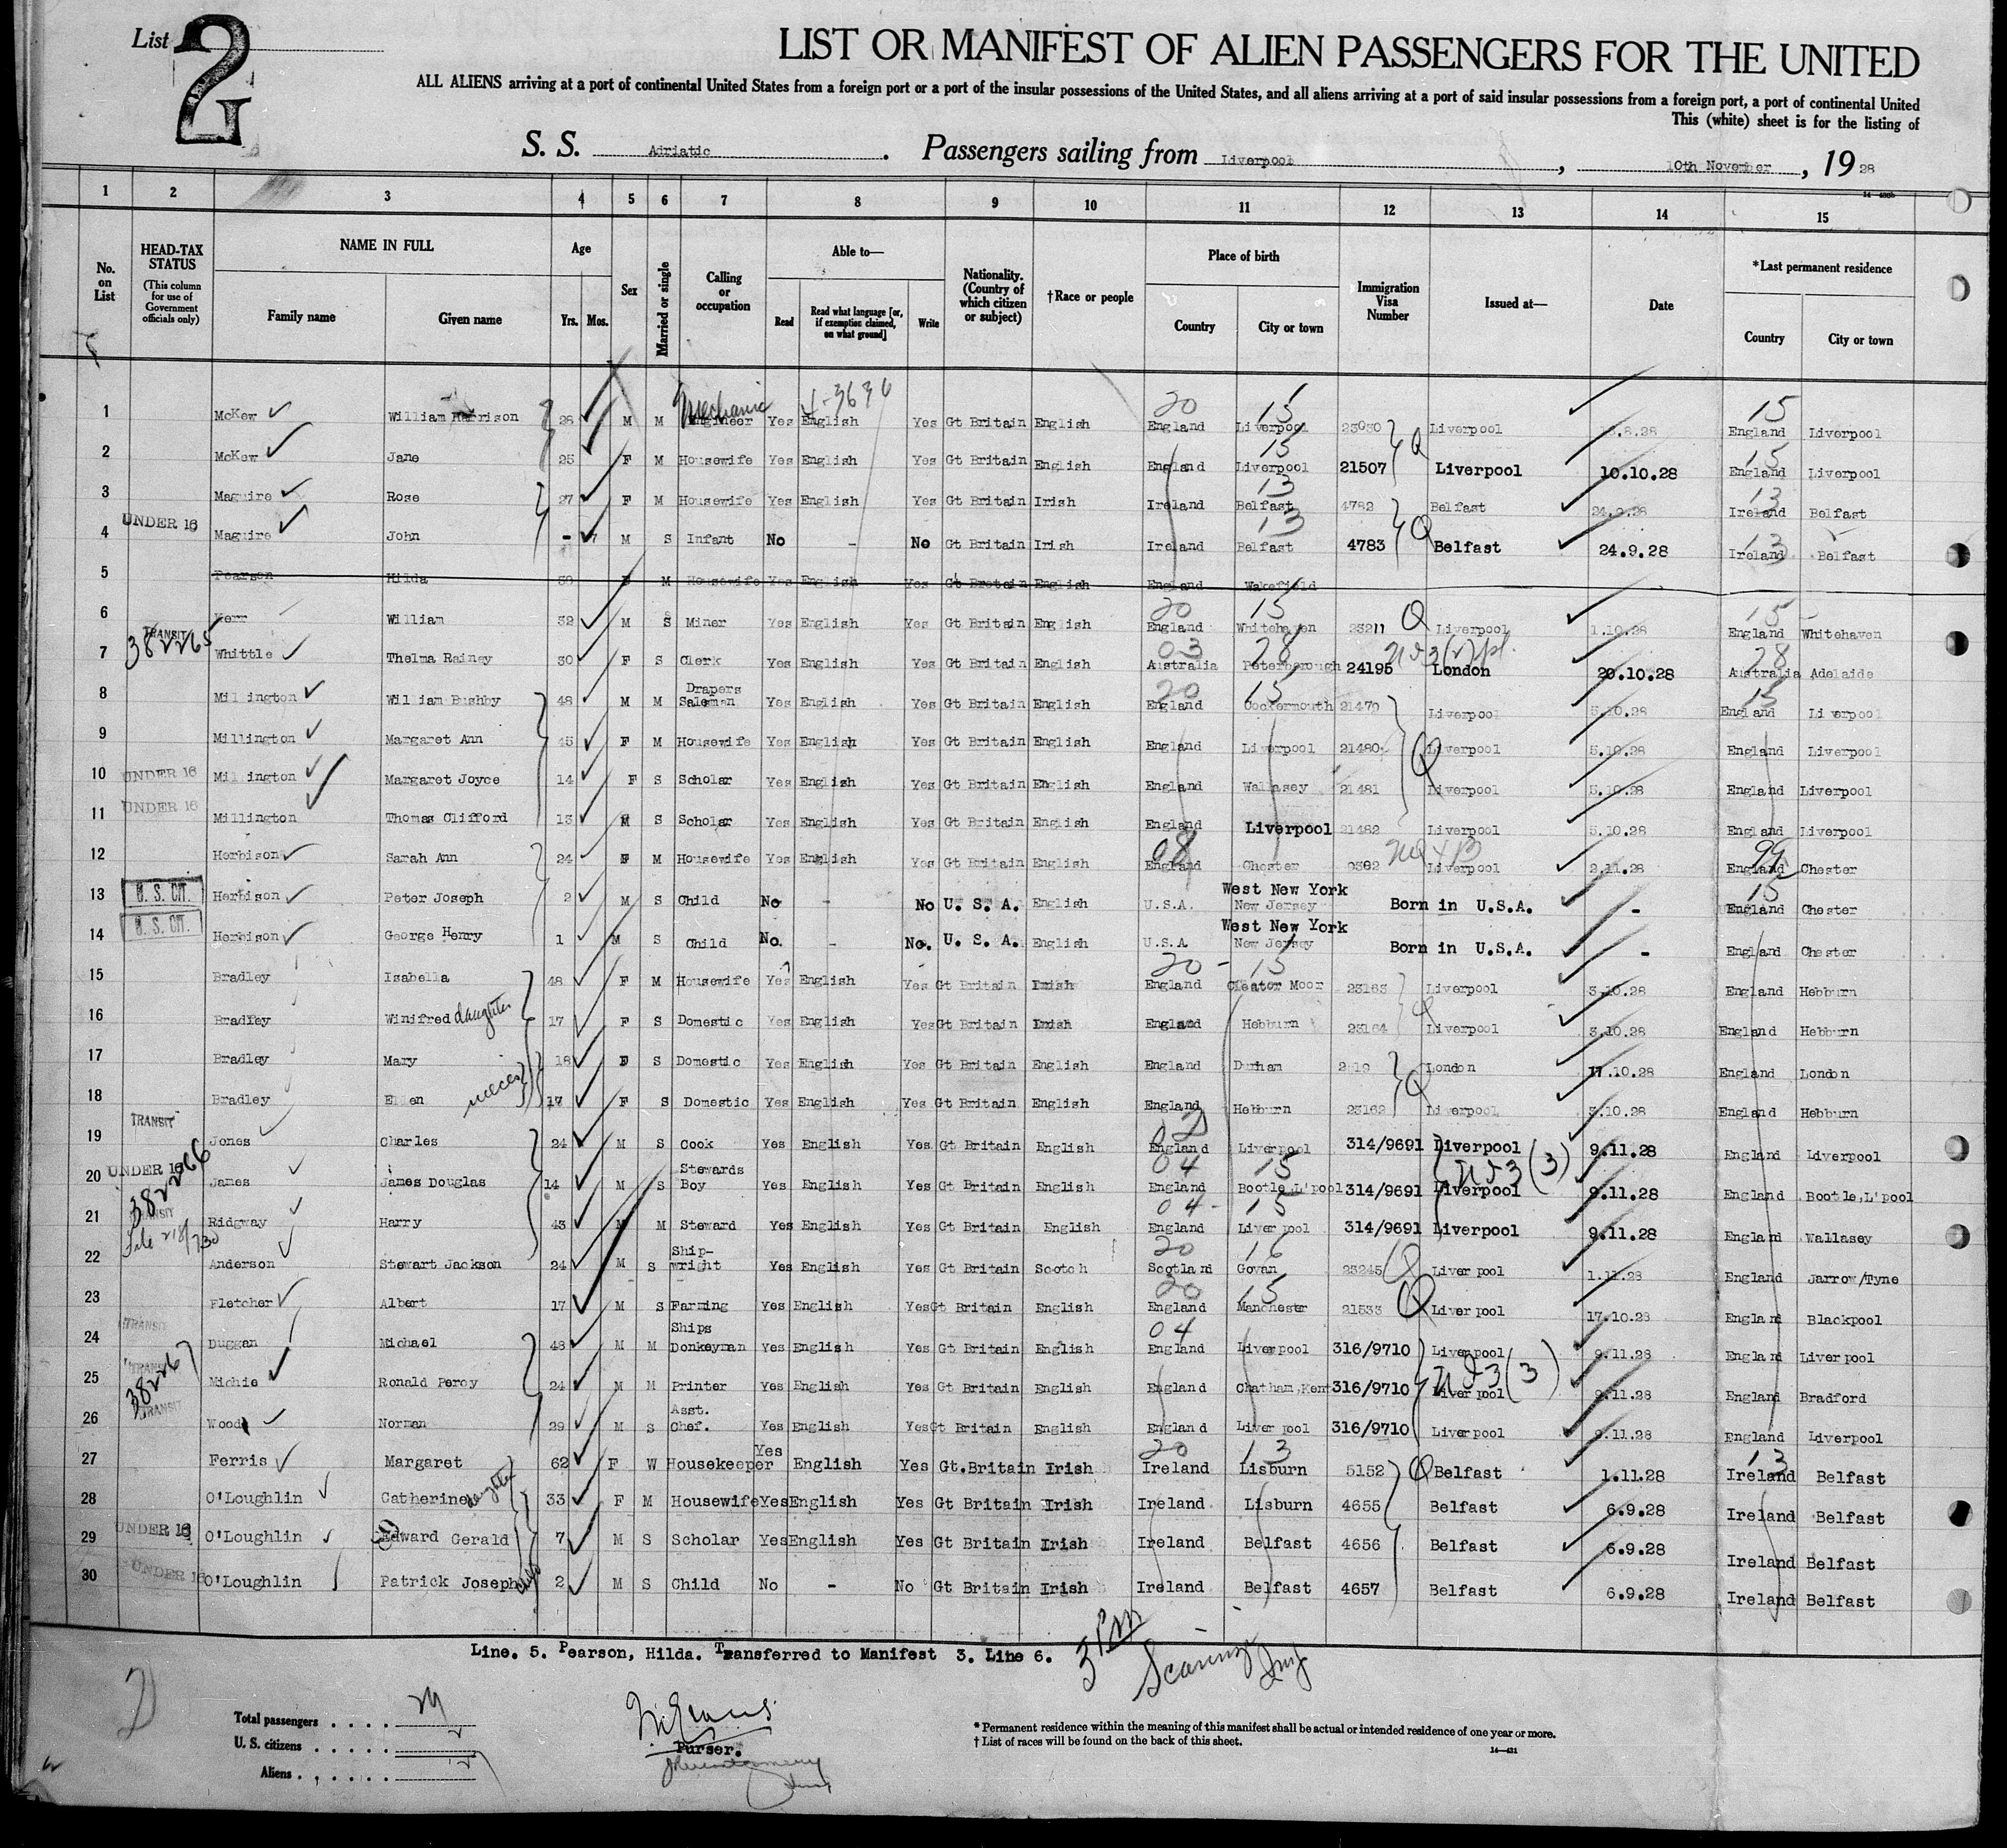 List 2
LIST OR MANIFEST OF ALIEN PASSENGERS FOR THE UNITED
ALL ALIENS arriving at a port of continental United States from a foreign port or a port of the insular possessions of the United States, and all aliens arriving at a port of said insular possessions from a foreign port, a port of continental United
This (white) sheet is for the listing of
S. S. Adriatic. Passengers sailing from Liverpool, 10th November, 1928
1 2 3 4 5 6 7 8 9 10 11 12 13 14 15
No. on List
HEAD-TAX STATUS (This column for use of Government officials only)
NAME IN FULL Family name Given name
Age Yrs. Mos.
Sex
Married or single
Calling or occupation
Able to— Read Read what language [or, if exemption claimed, on what ground] Write
Nationality. (Country of which citizen or subject)
†Race or people
Place of birth Country City or town
Immigration Visa Number
Issued at—
Date
*Last permanent residence Country City or town
1 McKew William Harrison 28 M M Mechanic Engineer Yes English Yes Gt Britain English England Liverpool Liverpool England Liverpool
2 McKew Jane 25 F M Housewife Yes English Yes Gt Britain English England Liverpool 21507 Liverpool 10.10.28 England Liverpool
3 Maguire Rose 27 F M Housewife Yes English Yes Gt Britain Irish Ireland Belfast 4782 Belfast 24.9.28 Ireland Belfast
4 UNDER 16 Maguire John - 7 M S Infant No - No Gt Britain Irish Ireland Belfast 4783 Belfast 24.9.28 Ireland Belfast
5 Pearson Hilda M Housewife Yes English Yes Gt Bretain English England Wakefield
6 Kerr William 32 M S Miner Yes English Yes Gt Britain English England Whitehaven 23211 Liverpool 1.10.28 England Whitehaven
7 TRANSIT 382265 Whittle Thelma Rainey 30 F S Clerk Yes English Yes Gt Britain English Australia Peterborough 24195 London 20.10.28 Australia Adelaide
8 Millington William Bushby 48 M M Drapers Salesman Yes English Yes Gt Britain English England Cockermouth 21479 Liverpool 5.10.28 England Liverpool
9 Millington Margaret Ann 45 F M Housewife Yes English Yes Gt Britain English England Liverpool 21480 Liverpool 5.10.28 England Liverpool
10 UNDER 16 Millington Margaret Joyce 14 F S Scholar Yes English Yes Gt Britain English England Wallasey 21481 Liverpool 5.10.28 England Liverpool
11 UNDER 16 Millington Thomas Clifford 13 M S Scholar Yes English Yes Gt Britain English England Liverpool 21482 Liverpool 5.10.28 England Liverpool
12 Herbison Sarah Ann 24 F M Housewife Yes English Yes Gt Britain English England Chester Liverpool 2.11.28 England Chester
13 U. S. CIT. Herbison Peter Joseph 2 M S Child No - No U. S. A. English U.S.A. West New York New Jersey Born in U.S.A. - England Chester
14 U. S. CIT. Herbison George Henry 1 M S Child No. - No. U. S. A. English U.S.A. West New York New Jersey Born in U.S.A. - England Chester
15 Bradley Isabella 48 F M Housewife Yes English Yes Gt Britain Irish England Cleator Moor 23163 Liverpool 3.10.28 England Hebburn
16 Bradley Winifred daughter 17 F S Domestic Yes English Yes Gt Britain Irish England Hebburn 23164 Liverpool 3.10.28 England Hebburn
17 Bradley Mary 18 F S Domestic Yes English Yes Gt Britain English England Durham London 17.10.28 England London
18 Bradley Ellen nieces 17 F S Domestic Yes English Yes Gt Britain English England Hebburn 23162 Liverpool 3.10.28 England Hebburn
19 TRANSIT Jones Charles 24 M S Cook Yes English Yes Gt Britain English England Liverpool 314/9691 Liverpool 9.11.28 England Liverpool
20 UNDER 16 382266 James James Douglas 14 M S Stewards Boy Yes English Yes Gt Britain English England Bootle,L'pool 314/9691 Liverpool 9.11.28 England Bootle,L'pool
21 TRANSIT Ridgway Harry 43 M M Steward Yes English Yes Gt Britain English England Liverpool 314/9691 Liverpool 9.11.28 England Wallasey
22 Anderson Stewart Jackson 24 M S Ship-wright Yes English Yes Gt Britain Scotch Scotland Govan 23245 Liverpool 1.11.28 England Jarrow/Tyne
23 Fletcher Albert 17 M S Farming Yes English Yes Gt Britain English England Manchester 21533 Liverpool 17.10.28 England Blackpool
24 TRANSIT Duggan Michael 48 M M Ships Donkeyman Yes English Yes Gt Britain English England Liverpool 316/9710 Liverpool 9.11.28 England Liverpool
25 TRANSIT 382267 Michie Ronald Percy 24 M M Printer Yes English Yes Gt Britain English England Chatham,Kent 316/9710 Liverpool 9.11.28 England Bradford
26 TRANSIT Wood Norman 29 M S Asst. Chef. Yes English Yes Gt Britain English England Liverpool 316/9710 Liverpool 9.11.28 England Liverpool
27 Ferris Margaret 62 F W Housekeeper Yes English Yes Gt.Britain Irish Ireland Lisburn 5152 Belfast 1.11.28 Ireland Belfast
28 O'Loughlin Catherine daughter 33 F M Housewife Yes English Yes Gt Britain Irish Ireland Lisburn 4655 Belfast 6.9.28 Ireland Belfast
29 UNDER 16 O'Loughlin Edward Gerald 7 M S Scholar Yes English Yes Gt Britain Irish Ireland Belfast 4656 Belfast 6.9.28 Ireland Belfast
30 UNDER 16 O'Loughlin Patrick Joseph 2 M S Child No - No Gt Britain Irish Ireland Belfast 4657 Belfast 6.9.28 Ireland Belfast
Line. 5. Pearson, Hilda. Transferred to Manifest 3. Line 6.
Total passengers
U. S. citizens
Aliens
Purser.
* Permanent residence within the meaning of this manifest shall be actual or intended residence of one year or more.
† List of races will be found on the back of this sheet.
14—431